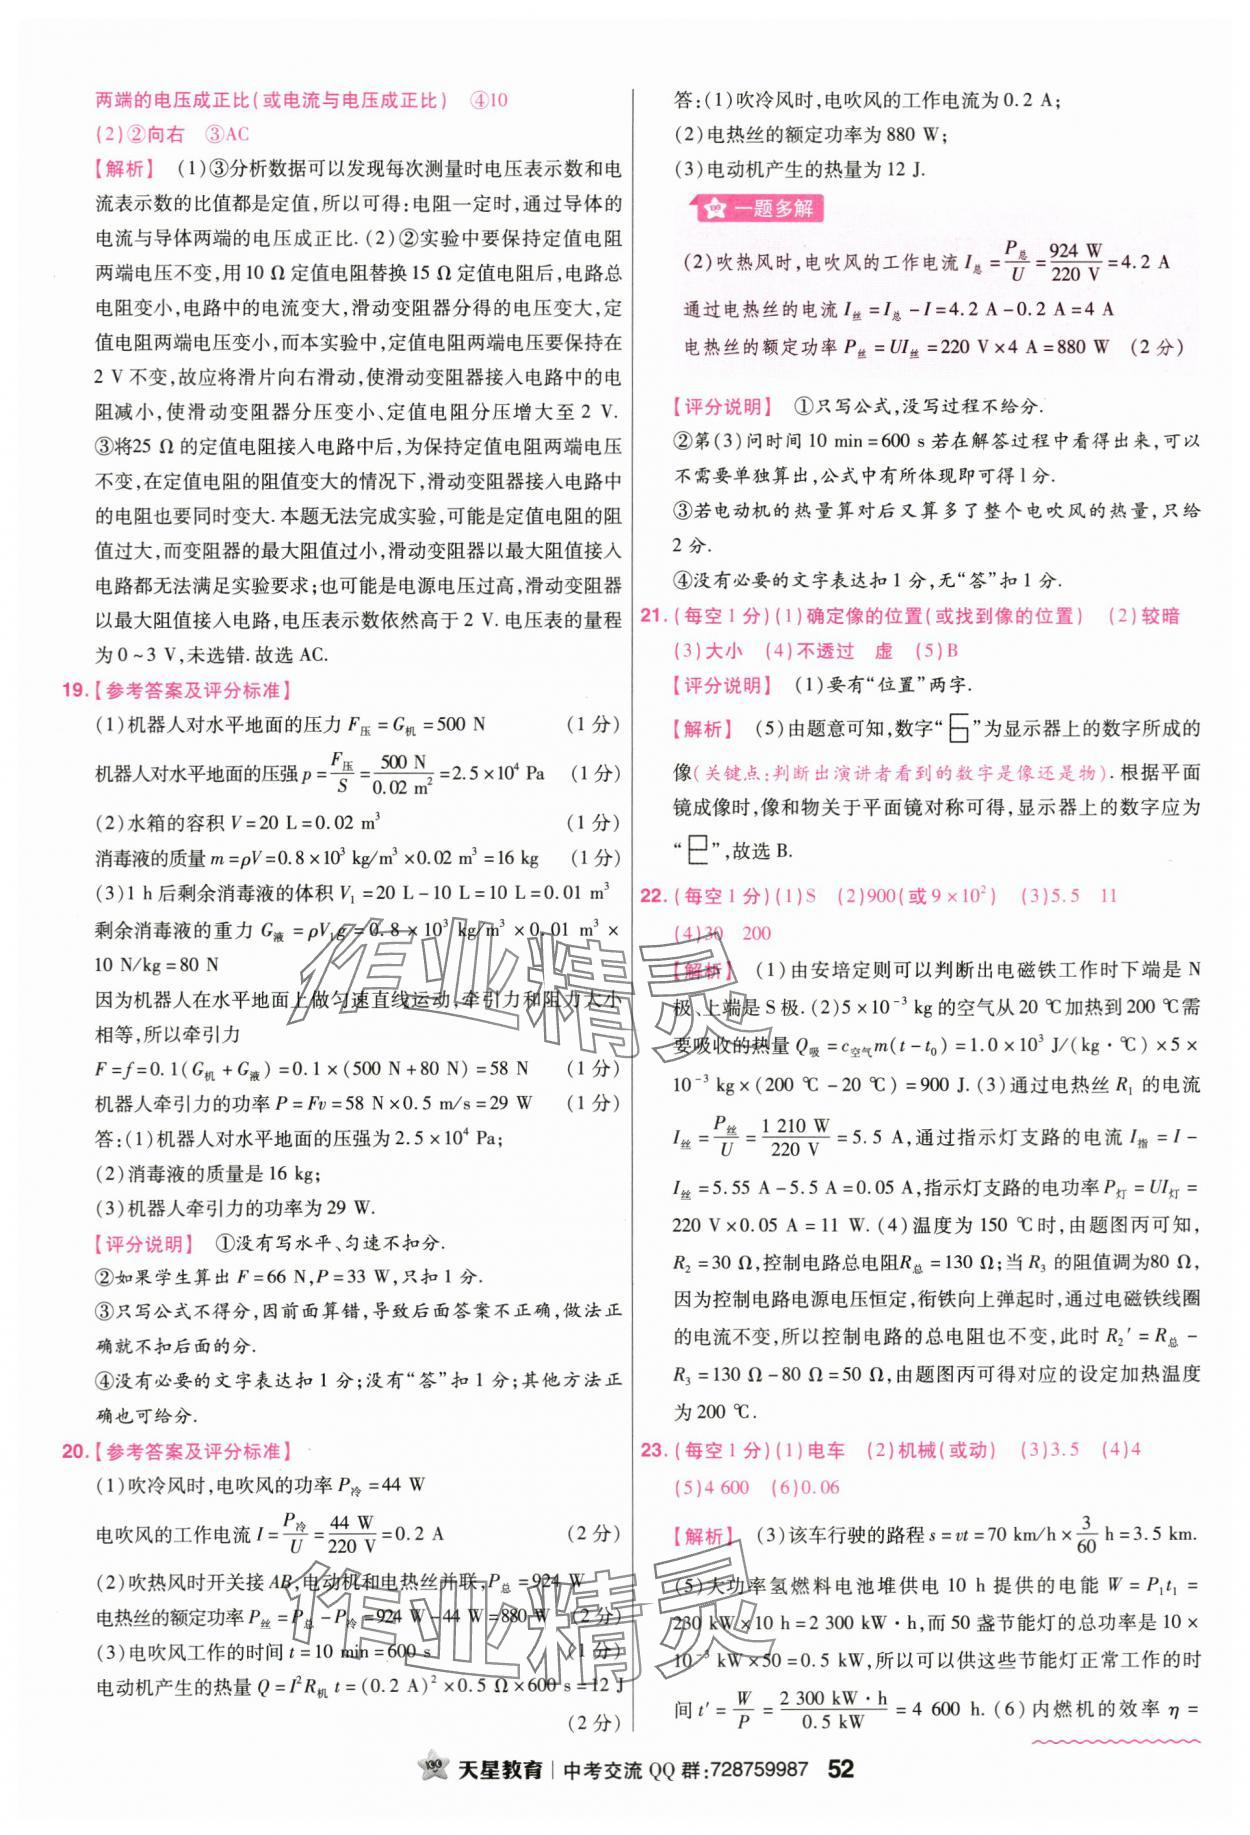 两端的电压成正比(或电流与电压成正比) ④10
(2)②向右 ③AC
【解析】 (1)③分析数据可以发现每次测量时电压表示数和电
流表示数的比值都是定值,所以可得:电阻一定时,通过导体的
电流与导体两端的电压成正比.(2)②实验中要保持定值电阻
两端电压不变,用 10 Ω 定值电阻替换 15 Ω 定值电阻后,电路总
电阻变小,电路中的电流变大,滑动变阻器分得的电压变大,定
值电阻两端电压变小,而本实验中,定值电阻两端电压要保持在
2 V 不变,故应将滑片向右滑动,使滑动变阻器接入电路中的电
阻减小,使滑动变阻器分压变小、定值电阻分压增大至 2 V.
③将25 Ω 的定值电阻接入电路中后,为保持定值电阻两端电压
不变,在定值电阻的阻值变大的情况下,滑动变阻器接入电路中
的电阻也要同时变大.本题无法完成实验,可能是定值电阻的阻
值过大,而变阻器的最大阻值过小,滑动变阻器以最大阻值接入
电路都无法满足实验要求;也可能是电源电压过高,滑动变阻器
以最大阻值接入电路,电压表示数依然高于 2 V.电压表的量程
为 0~3 V,未选错.故选 AC.
19.【参考答案及评分标准】
(1)机器人对水平地面的压力 F压=G机=500 N (1 分)
机器人对水平地面的压强 p=F压/S=500 N/0.02 m²=2.5×10⁴ Pa (1 分)
(2)水箱的容积 V=20 L=0.02 m³ (1 分)
消毒液的质量 m=ρV=0.8×10³ kg/m³×0.02 m³=16 kg (1 分)
(3)1 h 后剩余消毒液的体积 V₁=20 L-10 L=10 L=0.01 m³
剩余消毒液的重力 G液=ρV₁g=0.8×10³ kg/m³×0.01 m³×
10 N/kg=80 N
因为机器人在水平地面上做匀速直线运动,牵引力和阻力大小
相等,所以牵引力
F=f=0.1(G机+G液)=0.1×(500 N+80 N)=58 N (1 分)
机器人牵引力的功率 P=Fv=58 N×0.5 m/s=29 W (1 分)
答:(1)机器人对水平地面的压强为 2.5×10⁴ Pa;
(2)消毒液的质量是 16 kg;
(3)机器人牵引力的功率为 29 W.
【评分说明】 ①没有写水平、匀速不扣分.
②如果学生算出 F=66 N,P=33 W,只扣 1 分.
③只写公式不得分,因前面算错,导致后面答案不正确,做法正
确就不扣后面的分.
④没有必要的文字表达扣 1 分;没有“答”扣 1 分;其他方法正
确也可给分.
20.【参考答案及评分标准】
(1)吹冷风时,电吹风的功率 P冷=44 W
电吹风的工作电流 I=P冷/U=44 W/220 V=0.2 A (2 分)
(2)吹热风时开关接 AB,电动机和电热丝并联,P总=924 W
电热丝的额定功率 P丝=P总-P冷=924 W-44 W=880 W (2 分)
(3)电吹风工作的时间 t=10 min=600 s (1 分)
电动机产生的热量 Q=I²R机 t=(0.2 A)²×0.5 Ω×600 s=12 J
(2 分)
答:(1)吹冷风时,电吹风的工作电流为 0.2 A;
(2)电热丝的额定功率为 880 W;
(3)电动机产生的热量为 12 J.
一题多解
(2)吹热风时,电吹风的工作电流 I总=P总/U=924 W/220 V=4.2 A
通过电热丝的电流 I丝=I总-I=4.2 A-0.2 A=4 A
电热丝的额定功率 P丝=UI丝=220 V×4 A=880 W (2 分)
【评分说明】 ①只写公式,没写过程不给分.
②第(3)问时间 10 min=600 s 若在解答过程中看得出来,可以
不需要单独算出,公式中有所体现即可得1分.
③若电动机的热量算对后又算多了整个电吹风的热量,只给
2 分.
④没有必要的文字表达扣 1 分,无“答”扣 1 分.
21.(每空 1 分)(1)确定像的位置(或找到像的位置) (2)较暗
(3)大小 (4)不透过 虚 (5)B
【评分说明】 (1)要有“位置”两字.
【解析】 (5)由题意可知,数字“ ”为显示器上的数字所成的
像(关键点:判断出演讲者看到的数字是像还是物).根据平面
镜成像时,像和物关于平面镜对称可得,显示器上的数字应为
“ ”,故选 B.
22.(每空 1 分)(1)S (2)900(或 9×10²) (3)5.5 11
(4)30 200
【解析】 (1)由安培定则可以判断出电磁铁工作时下端是 N
极、上端是 S 极.(2)5×10⁻³ kg的空气从20 ℃加热到200 ℃需
要吸收的热量 Q吸=c空气m(t-t₀)=1.0×10³ J/(kg·℃)×5×
10⁻³ kg×(200 ℃-20 ℃)=900 J.(3)通过电热丝 R₁ 的电流
I丝=P丝/U=1 210 W/220 V=5.5 A,通过指示灯支路的电流 I指=I-
I丝=5.55 A-5.5 A=0.05 A,指示灯支路的电功率 P灯=UI灯=
220 V×0.05 A=11 W.(4)温度为 150 ℃时,由题图丙可知,
R₂=30 Ω,控制电路总电阻R总=130 Ω;当 R₃ 的阻值调为80 Ω,
因为控制电路电源电压恒定,衔铁向上弹起时,通过电磁铁线圈
的电流不变,所以控制电路的总电阻也不变,此时 R₂′=R总-
R₃=130 Ω-80 Ω=50 Ω,由题图丙可得对应的设定加热温度
为 200 ℃.
23.(每空 1 分)(1)电车 (2)机械(或动) (3)3.5 (4)4
(5)4 600 (6)0.06
【解析】 (3)该车行驶的路程 s=vt=70 km/h×3/60 h=3.5 km.
(5)大功率氢燃料电池堆供电 10 h 提供的电能 W=P₁t₁=
230 kW×10 h=2 300 kW·h,而 50 盏节能灯的总功率是 10×
10⁻³ kW×50=0.5 kW,所以可以供这些节能灯正常工作的时
间 t′=W/P=2 300 kW·h/0.5 kW=4 600 h.(6)内燃机的效率 η=
作业精灵
作业精灵
天星教育 | 中考交流 QQ 群:728759987 52